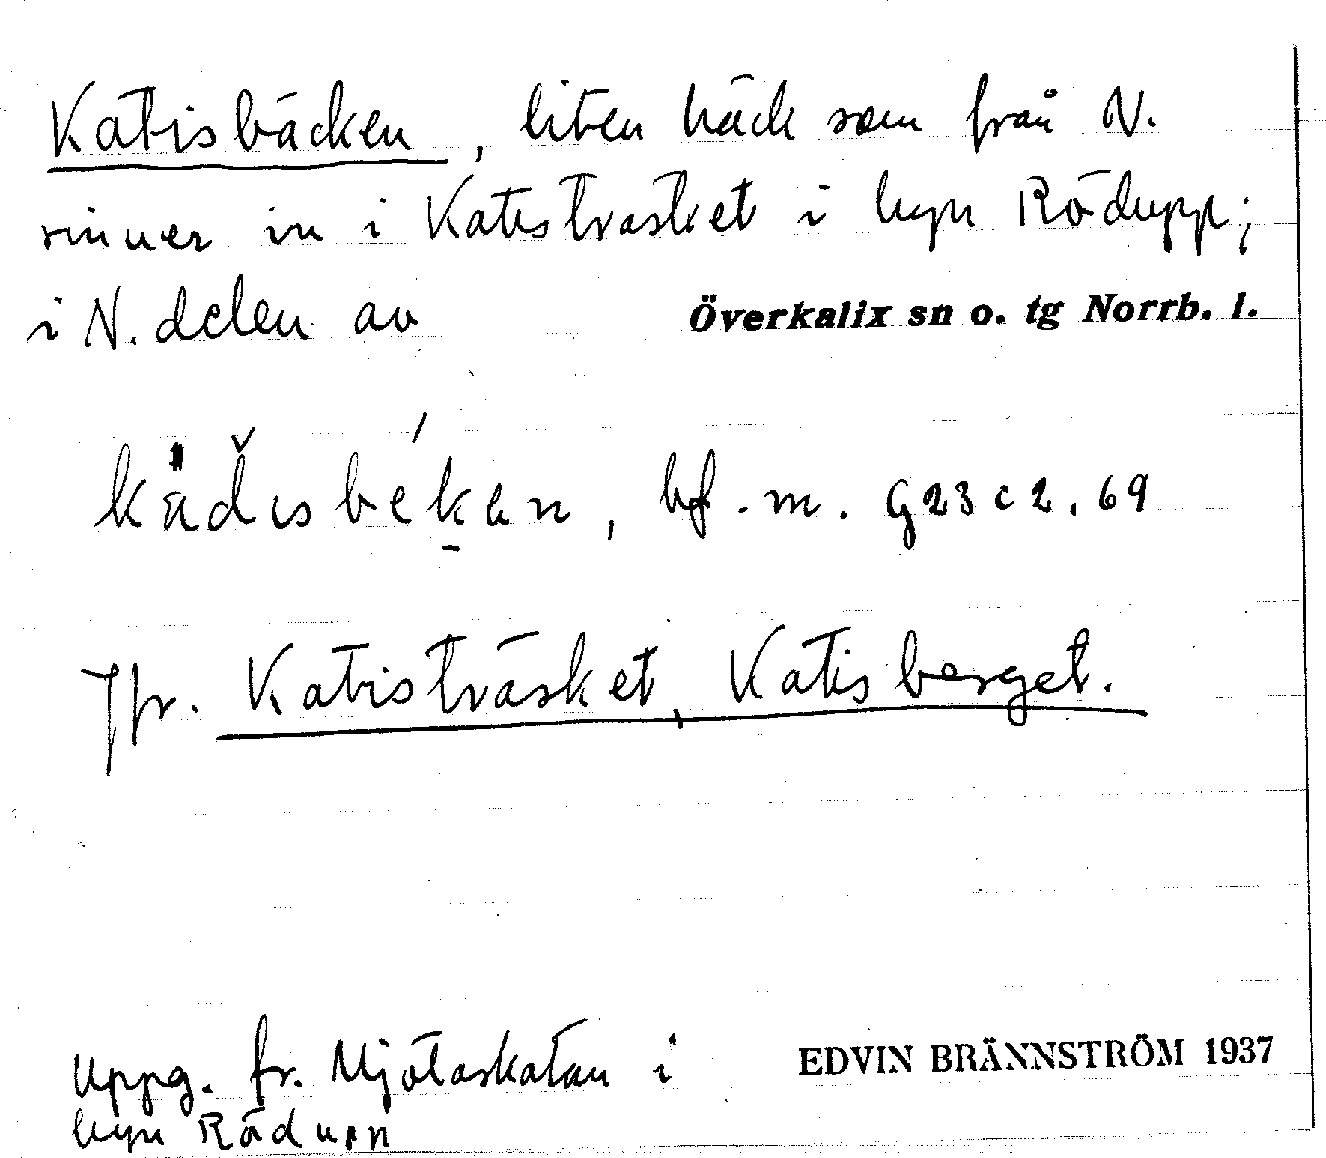 Katisbäcken, liten bäck som från N.
rinner in i Katisträsket i byn Rödupp;
i N. delen av Överkalix sn o. tg Norrb. l.
bf. m. G23 c 2. 69
Jfr. Katisträsket, Katisberget.
Uppg. fr. Mjötaskatan i EDVIN BRÄNNSTRÖM 1937
byn Rödupp